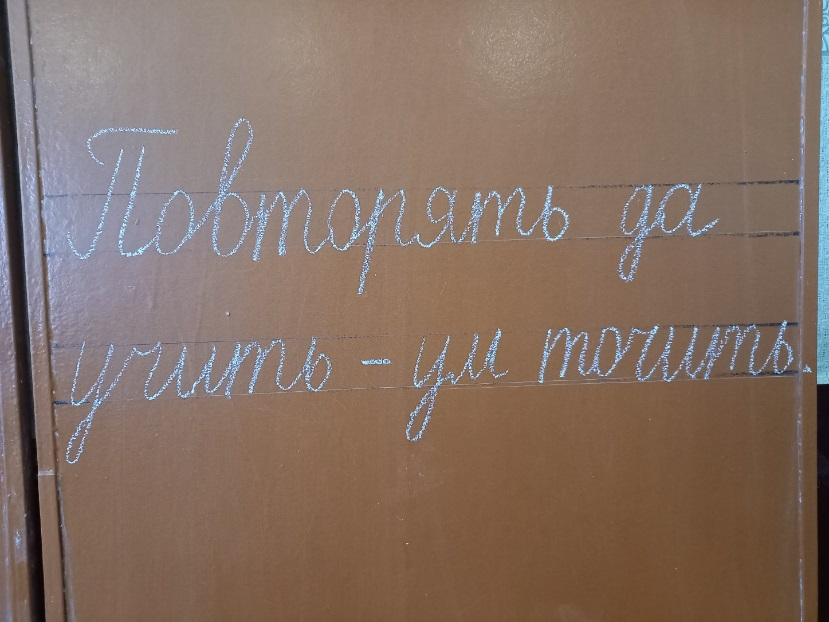 Повторять да
учить - ум точить.